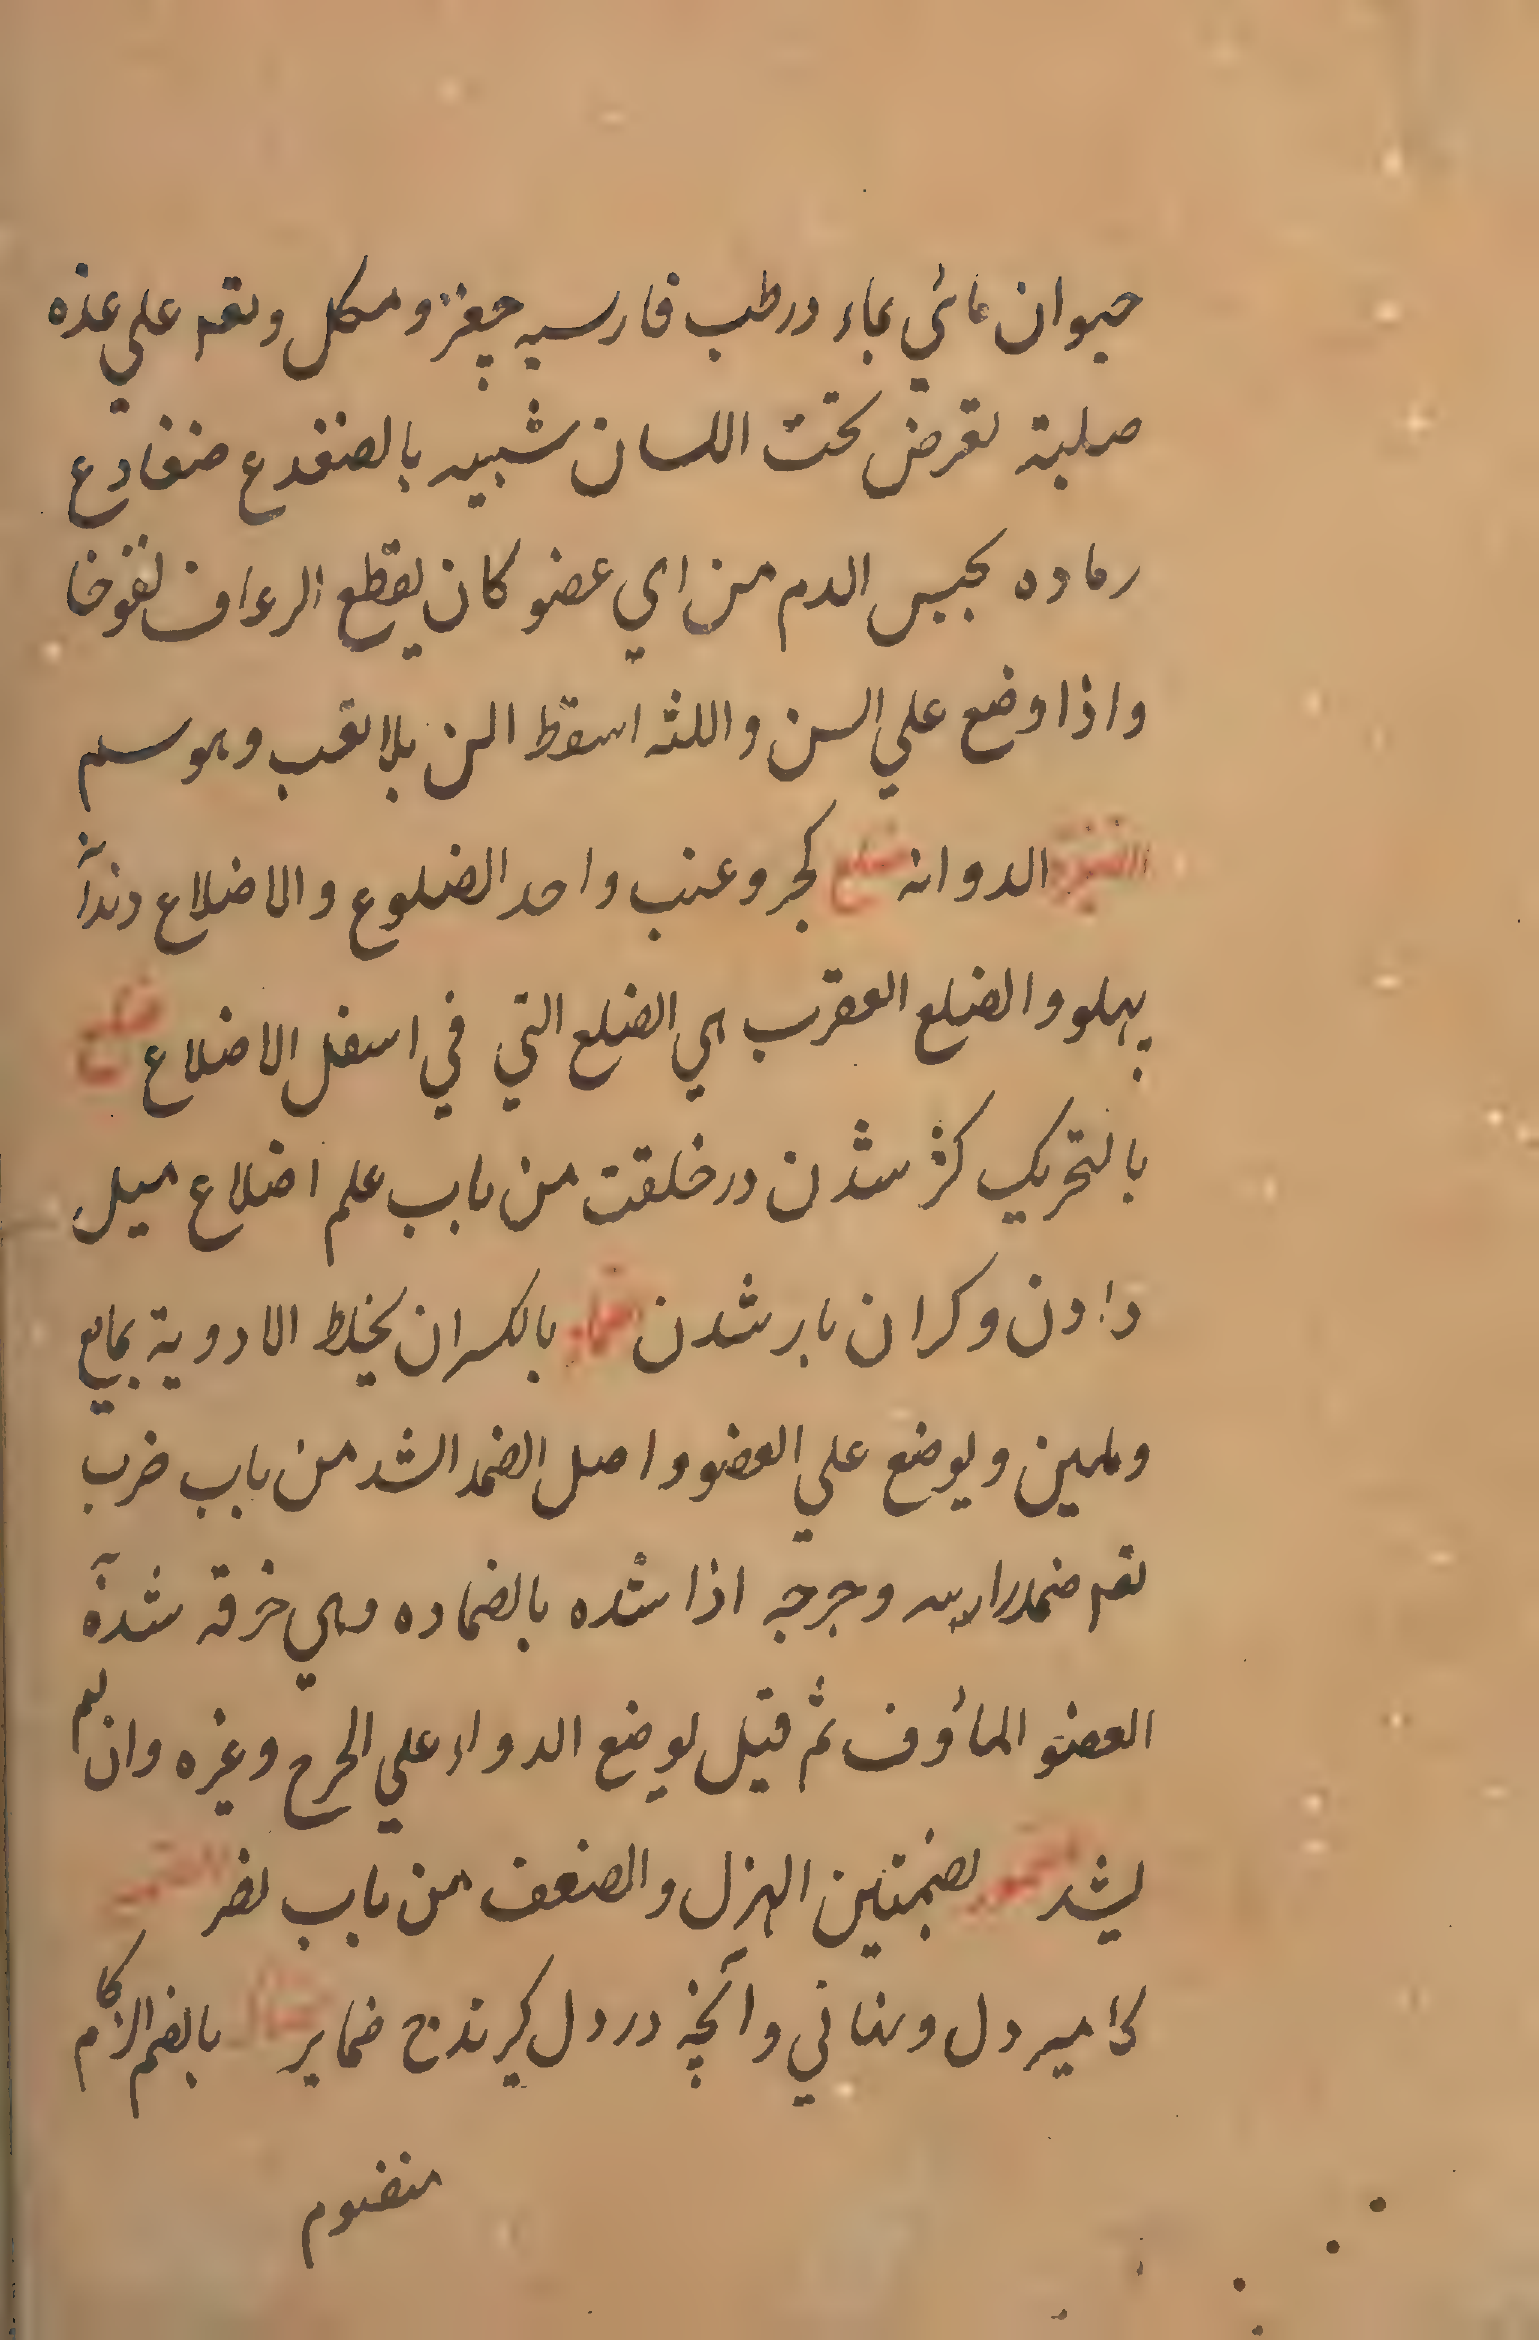 حيوان مائي بماء ورطب فارسيه چغز ومكل ويقع علي غده
صلبة تعرض تحت اللسان شبيه بالضفدع ضفادع
رماده يحبس الدم من اي عضو كان يقطع الرعاف نفوخا
واذا وضع علي السن واللثه اسقط السن بلا تعب وهو سم
الدوانه ضلع كحجر وعنب واحد الضلوع والاضلاع دندانه
پهلو والضلع العقرب هي الضلع التي في اسفل الاضلاع ضلع
بالتحريك كژ شدن در خلقت من باب علم اضلاع ميل
دادن وكران بار شدن ضماد بالكسر ان يخلط الادوية بمايع
ويلين ويوضع علي العضو واصل الضمد الشد من باب ضرب
يقع ضمد راسه وجرحه اذا شده بالضماده وهي خرقه شدة
العضو المأوف ثم قيل لوضع الدواء علي الجرح وغيره وان لم
يشد ضمور بضمتين الهزل والضعف من باب نصر الضمير
كامير دل ونهاني وآنچه در دل كيرند ج ضماير بالضم الزكام